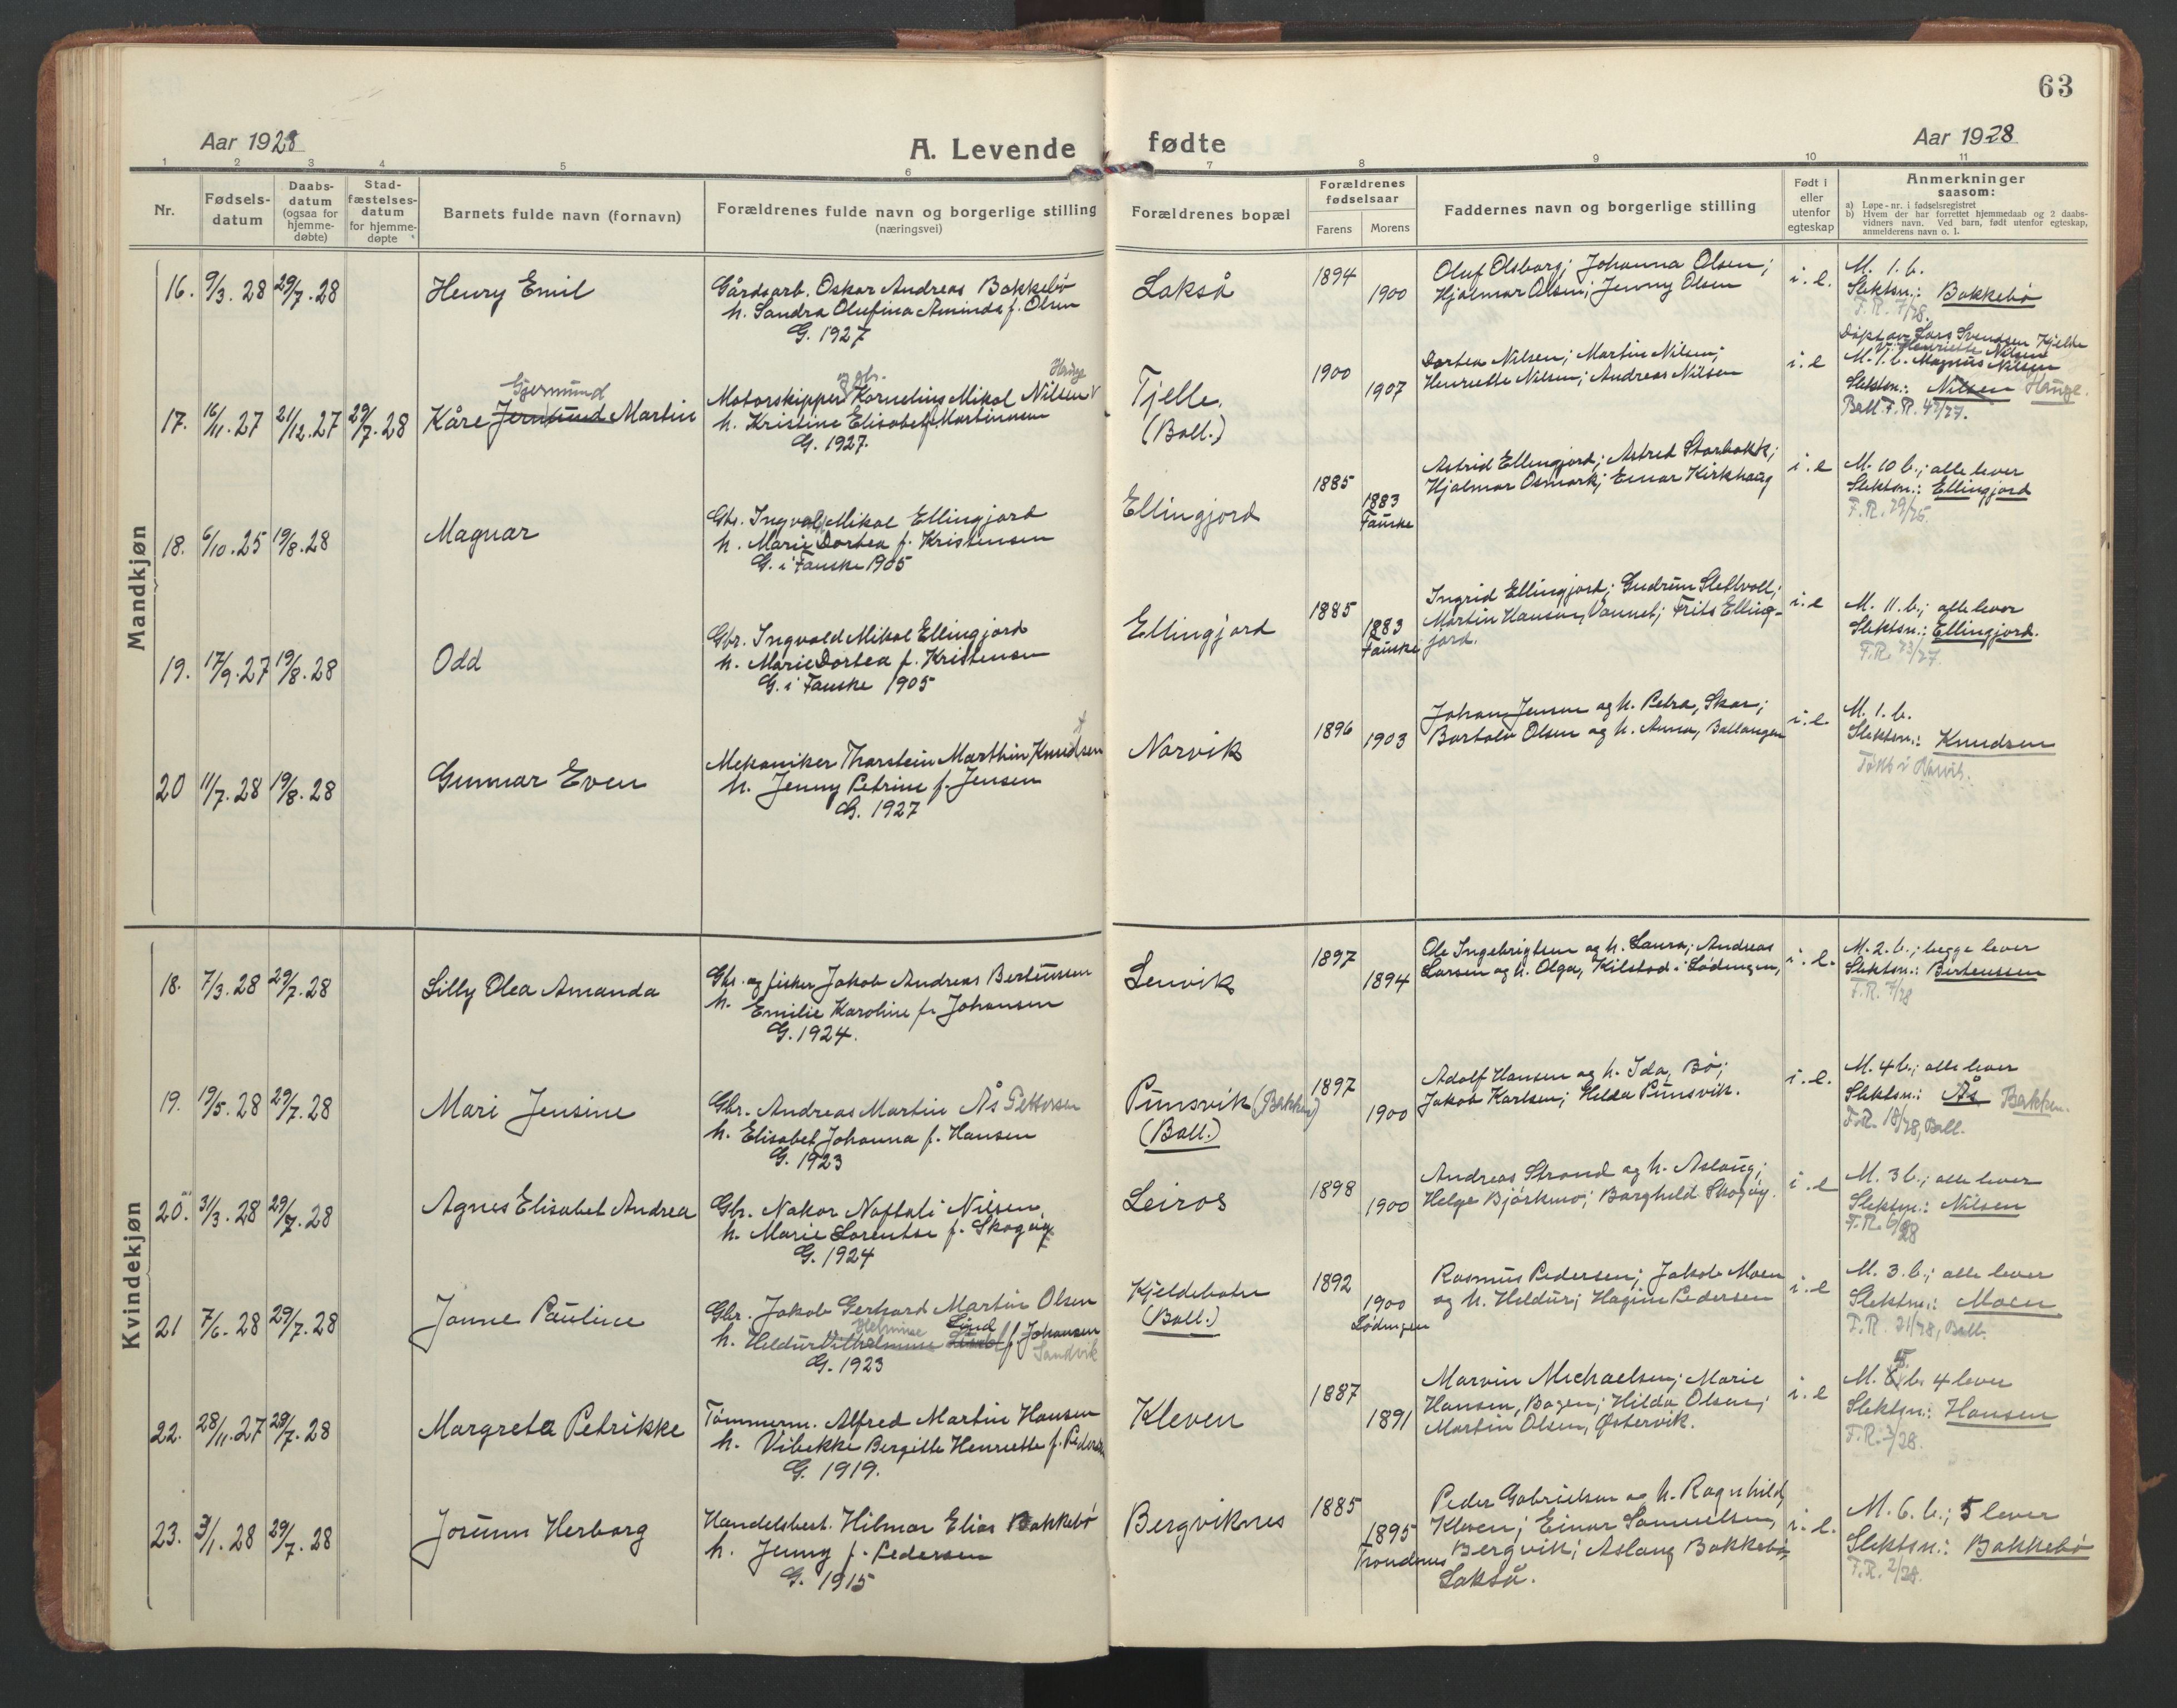 63
Aar 1928
A. Levende fødte
Aar 1928
1 2 3 4 5 6 7 8 9 10 11
Nr.
Fødsels-
datum
Daabs-
datum
(ogsaa for
hjemme-
døbte)
Stad-
fæstelses-
datum
for hjemme-
døpte
Barnets fulde navn (fornavn)
Forældrenes fulde navn og borgerlige stilling
(næringsvei)
Forældrenes bopæl
Forældrenes
fødselsaar
Farens Morens
Faddernes navn og borgerlige stilling
Født i
eller
utenfor
egteskap
Anmerkninger
saasom:
a) Løpe-nr. i fødselsregistret
b) Hvem der har forrettet hjemmedaab og 2 daabs-
vidners navn. Ved barn, født utenfor egteskap,
anmelderens navn o. l.
Mandkjøn
16. 9/3.28 29/7.28
Henry Emil
Gårdsarb. Oskar Andreas Bakkebø
h. Sandra Olufina Aminda f. Olsen
G. 1927
Lakså
1894
1900
Oluf Olsborg; Johanna Olsen;
Hjalmar Olsen; Jenny Olsen
i.e.
M. 1.b.
Slektsn.: Bakkebø
F.R. 7/28.
17. 16/11.27 21/12.27 29/7.28
Gjermund
Kåre Jermund Martin
og gbr. Hauge
Motorskipper Kornelius Mikal Nilsen
h. Kristine Elisabet f. Martinusen
G. 1927.
Tjelle.
(Ball.)
1900
1907
Dortea Nilsen; Martin Nilsen;
Henriette Nilsen; Andreas Nilsen
i.e
Døpt av Lars Svendsen Kjelde
V: Henriette Nilsen
M. 1.b. Magnus Nilsen
Slektsn.: Nilsen Hauge.
Ball. F.R. 43/27.
18. 6/10.25 19/8.28
Magnar
Gbr. Ingvald Mikal Ellingjord
h. Marie Dortea f. Kristensen
G. i Fauske 1905
Ellingjord
1885
1883
Fauske
Astrid Ellingjord; Astred Storbakk;
Hjalmar Osmark; Einar Kirkhaug
i.e
M. 10 b.; alle lever
Slektsn.: Ellingjord
F.R. 29/25.
19. 17/9.27 19/8.28
Odd
Gbr. Ingvald Mikal Ellingjord
h. Marie Dortea f. Kristensen
G. i Fauske 1905
Ellingjord
1885
1883
Fauske
Ingrid Ellingjord; Gudrun Slettvoll;
Martin Hansen, Vannet; Frits Elling-
jord.
i.e
M. 11.b.; alle lever
Slektsn.: Ellingjord.
F.R. 23/27.
20 11/7.28 19/8.28
Gunnar Even
Mekaniker Thorstein Marthin Knudsen
h. Jenny Petrine f. Jensen
G. 1927
Narvik
1896
1903
Johan Jensen og h. Petra, Skar;
Bartolo Olsen og h. Anna, Ballangen
i.e.
M. 1.b.
Slektsn.: Knudsen
Født i Narvik.
Kvindekjøn
18. 7/3.28 29/7.28
Lilly Olea Amanda
Gbr. og fisker Jakob Andreas Berteussen
h. Emilie Karoline f. Johansen
G. 1924.
Lenvik
1897
1894
Ole Ingebrigtsen og h. Laura; Andreas
Larsen og h. Olga, Kilstad i Lødingen,
i.e.
M. 2.b.; begge lever
Slektsn.: Berteussen
F.R. 4/28
19. 19/5.28 29/7.28
Mari Jensine
Gbr. Andreas Martin Ås Pettersen
h. Elisabet Johanna f. Hansen
G. 1923
Punsvik (Bakken)
(Ball.)
1897
1900
Adolf Hansen og h. Ida, Bø;
Jakob Karlsen; Helda Punsvik.
i.e.
M. 4b.; alle lever
Slektsn.: Ås Bakken.
F.R. 18/28, Ball.
20. 31/3.28 29/7.28
Agnes Elisabet Andrea
Gbr. Nakor Naftali Nilsen,
h. Marie Lorentse f. Skogøy
G. 1924
Leiros
1898
1900
Andreas Strand og h. Aslaug;
Helge Bjørkmo; Borghild Skogøy.
i.e
M. 3b.; alle lever
Slektsn.: Nilsen
F.R. 6/28
21 7/6.28 29/7.28
Janne Pauline
Gbr. Jakob Gerhard Martin Olsen
Helmine Lind
h. Heldur Vilhelmine f. Johansen
Sandvik
G. 1923
Kjeldebotn
(Ball.)
1892
1900
Lødingen
Rasmus Pedersen; Jakob Moen
og h. Heldur; Hagine Pedersen
i.e
M. 3.b.; alle lever
Slektsn.: Moen
F.R. 21/28, Ball.
22. 28/11.27 29/7.28
Margreta Petrikke
Tømmerm. Alfred Martin Hansen
h. Vibekke Bergitte Henriette f. Pedersen
G. 1919.
Kleven
1887
1891
Marvin Michaelsen; Marie
Hansen, Bogen; Hilda Olsen;
Martin Olsen, Østervik.
i.e
5.
M. b. 4 lever
Slektsn.: Hansen
F.R. 3/28.
23. 3/1.28 29/7.28
Jorunn Herborg
Handelsbest. Hilmar Elias Bakkebø
h. Jenny f. Pedersen
G. 1915
Bergviknes
1885
1895
Trondenes
Peder Gabrielsen og h. Ragnhild,
Kleven; Einar Samuelsen,
Bergvik; Aslaug Bakkebø,
Lakså.
i.e.
M. 6.b.; 5 lever
Slektsn.: Bakkebø
F.R. 2/28.